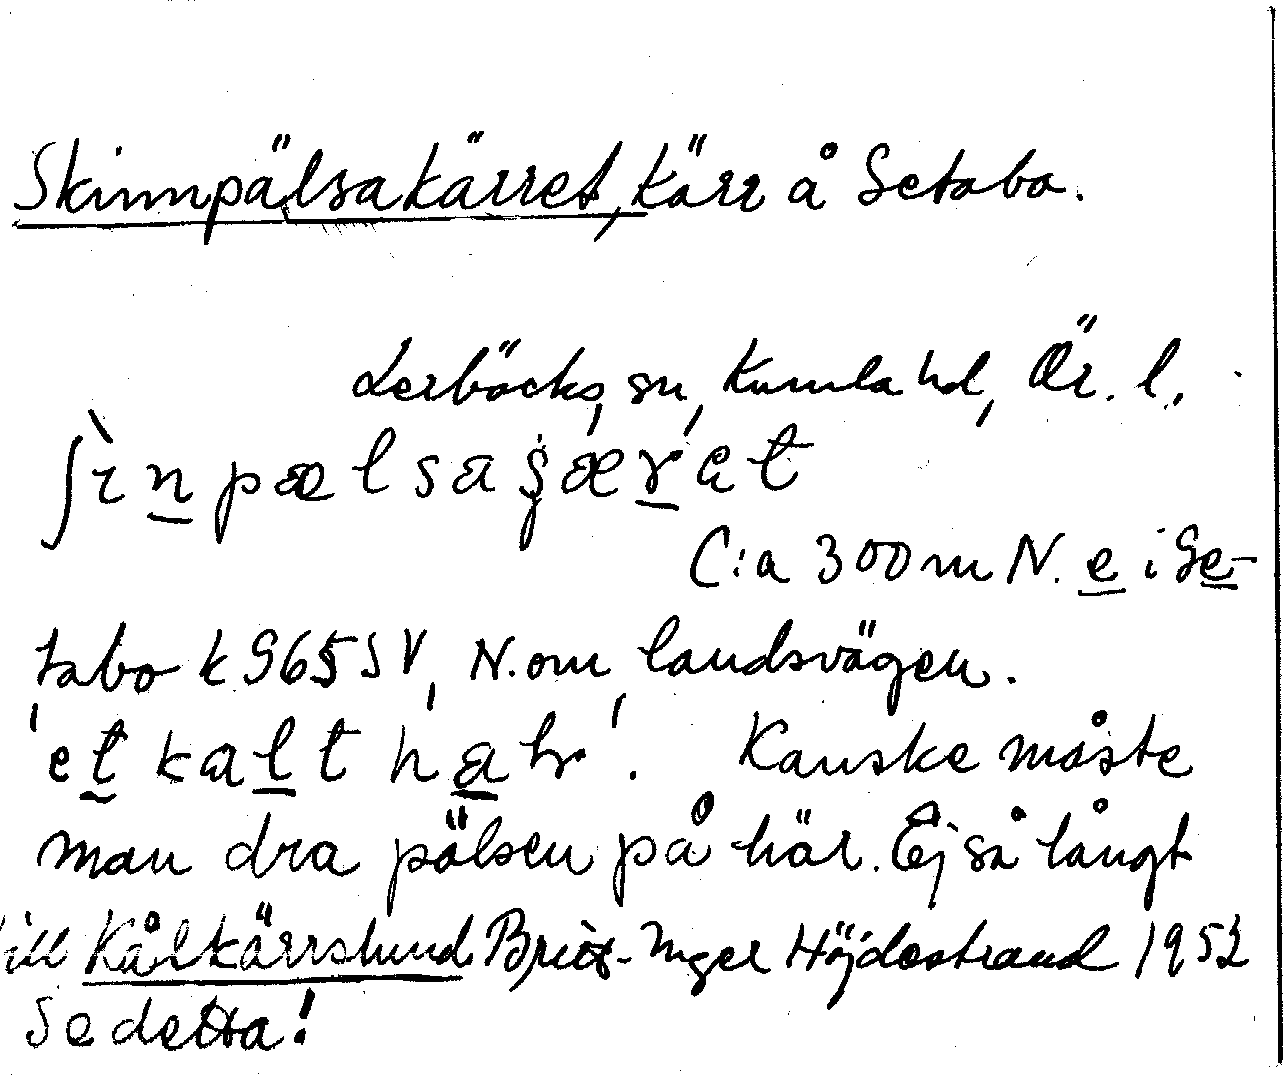 Skinnpälsakärret, Kärr å Setabo.
Lerbäcks, sn, Kumla hd, Ör. l.
ʃìnpælsaʂærət
C:a 300 m N. e i Se-
tabo k 965 SV, N. om landsvägen.
'et kalt hal'. Kanske måste
man dra pälsen på här. Ej så långt
till Kålkärrslund Britt-Inger Höjdestrand 1952
Se detta!